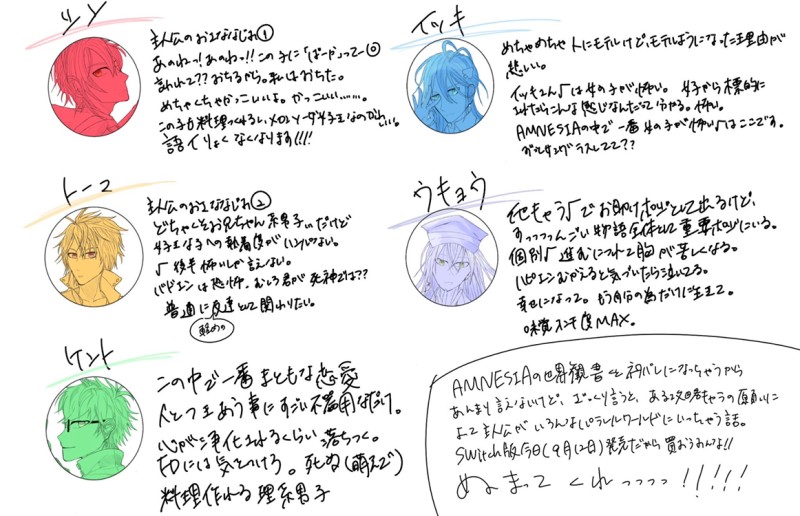 シン
主人公のおさななじみ①
あのねっ!あのねっ!!この子に「ばーか」って
言われて??おちるから。私はおちた。
めちゃくちゃかっこいいよ。かっこいい……。
この子も料理つくれるし、メロンソーダ好き
語イりょくなくなります!!!
イッキ
めちゃめちゃ人にモテルけど、モテルようになった理由が
悲しい。
イッキさん√は女の子が怖い。女子から標的に
されたらこんな感じなんだって分かる。怖い。
AMNESIAの中で一番女の子が怖い√はここです。
トーマ
主人公のおさななじみ②
どちゃくそお兄ちゃん系男子だけど
好きな子への執着度がハンパない。
√後半怖いしか言えない。
バドエンは恐怖。むしろ君が死神では??
普通に友達として関わりたい。
ウキョウ
他キャラ√でお助けポジとして出るけど、
すっっっんごい物語全体として重要ポジにいる。
個別√進むにつれて胸が苦しくなる。
ハピエンむかえると気づいたら泣いてる。
幸せになって。もう自分の為だけに生きて。
味覚オンチ度MAX。
ケント
この中で一番まともな恋愛
人とつき合う事にすごい不器用なだけ。
心が浄化されるくらい落ちつく。
FDには気をつけろ。死ぬ(萌えで)
料理作れる理系男子
AMNESIAの世界観書くとネタバレになっちゃうから
あんまり言えないけど、ざっくり言うと、ある攻略キャラの願いに
よって主人公がいろんなパラレルワールドにいっちゃう話。
Switch版今日(9月12日)発売だから買おうみんな!!
ぬまってくれっっっっ!!!!!